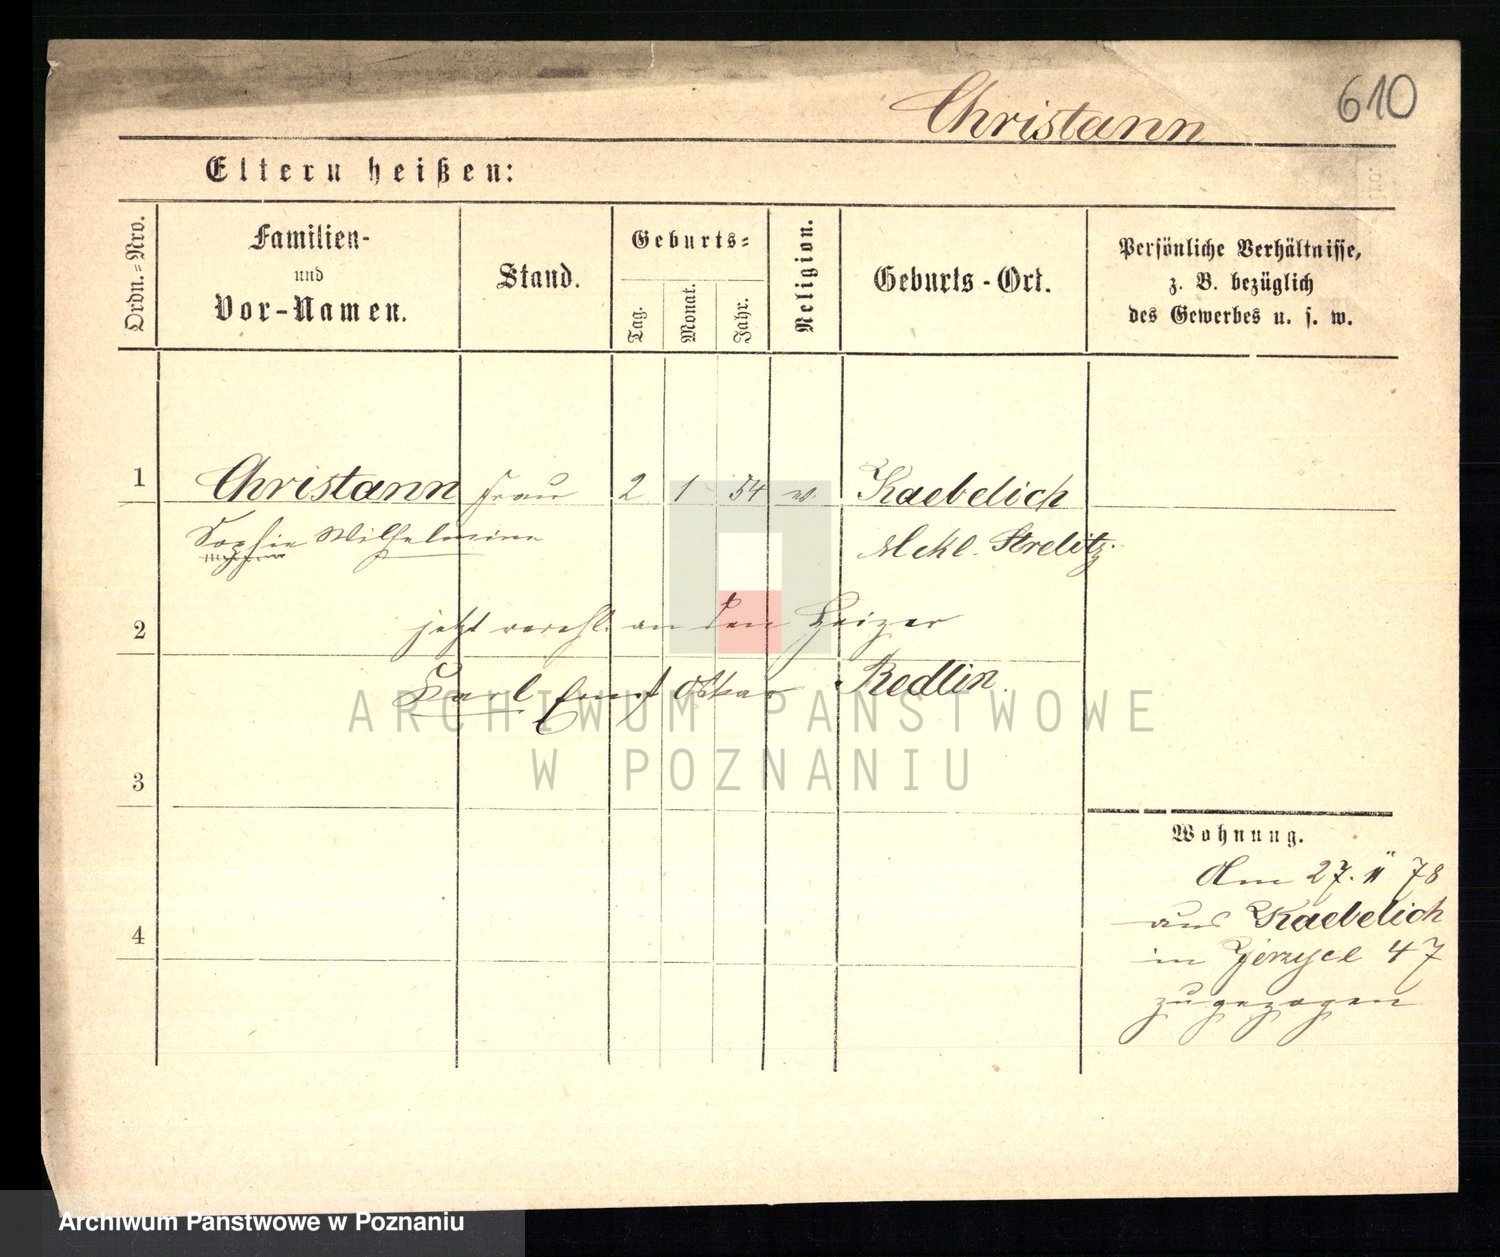 610
Christann
Eltern heißen:
Ordn.=Nro.
Familien-
und
Vor-Namen.
Stand.
Geburts=
Tag.
Monat.
Jahr.
Religion.
Geburts-Ort.
Persönliche Verhältnisse,
z. B. bezüglich
des Gewerbes u. s. w.
1 Christann Frau 2 1 54 ev. Kaebelich
Sophie Wilhelmine Mekl. Strelitz.
2 jetzt verehl. an den Heizer
Karl Ernst Oskar Redlin.
3
Wohnung.
Am 27. 11 78
aus Kaebelich
in Jerzyce 47
zugezogen
4
ARCHIWUM PAŃSTWOWE
W POZNANIU
Archiwum Państwowe w Poznaniu